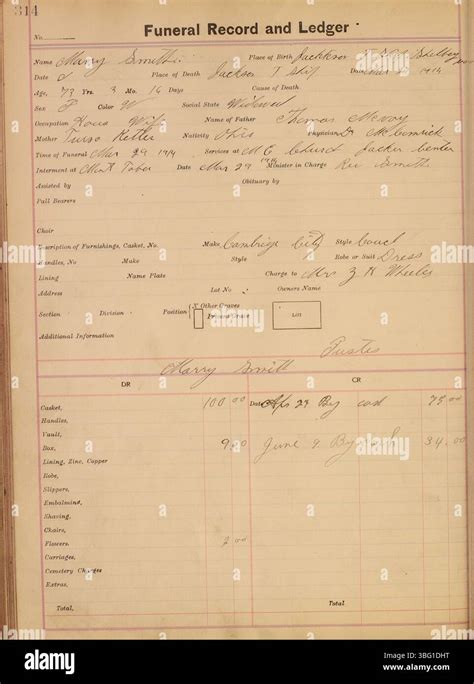 314
Funeral Record and Ledger
No.
Name Marry Smith Place of Birth Jackson
Date of Place of Death Jackson T Ship Date Mar 1914
Age, 73 Yrs. 3 Mo. 16 Days Cause of Death
Sex F Color W Social State Widowed
Occupation House Wife Name of Father Thomas McVoy
Mother Kettle Nativity Ohio Physician Dr McCormick
Time of Funeral Mar 29 1914 Services at M E Church Jackson Center
Interment at Mt Tabor Date Mar 29 1914 Minister in Charge Rev Smith
Assisted by Obituary by
Pall Bearers
Choir
Description of Furnishings, Casket, No. Make Cambrige City Style Couch
Handles, No. Make Style Robe or Suit Dress
Lining Name Plate Charge to Mrs Z K Wheeler
Address Lot No. Owners Name
Section Division Position Other Graves Present Grave LOT
Additional Information
Marry Smith
DR CR
Casket, 100 00 Date Apr 29 By cash 75 00
Handles,
Vault,
Box, 9 00 June 9 By 34 00
Lining, Zinc, Copper
Robe,
Slippers,
Embalming,
Shaving,
Chairs,
Flowers, 2 00
Carriages,
Cemetery Charges
Extras,
Total, Total
alamy
Image ID: 3BG1DHT
www.alamy.com